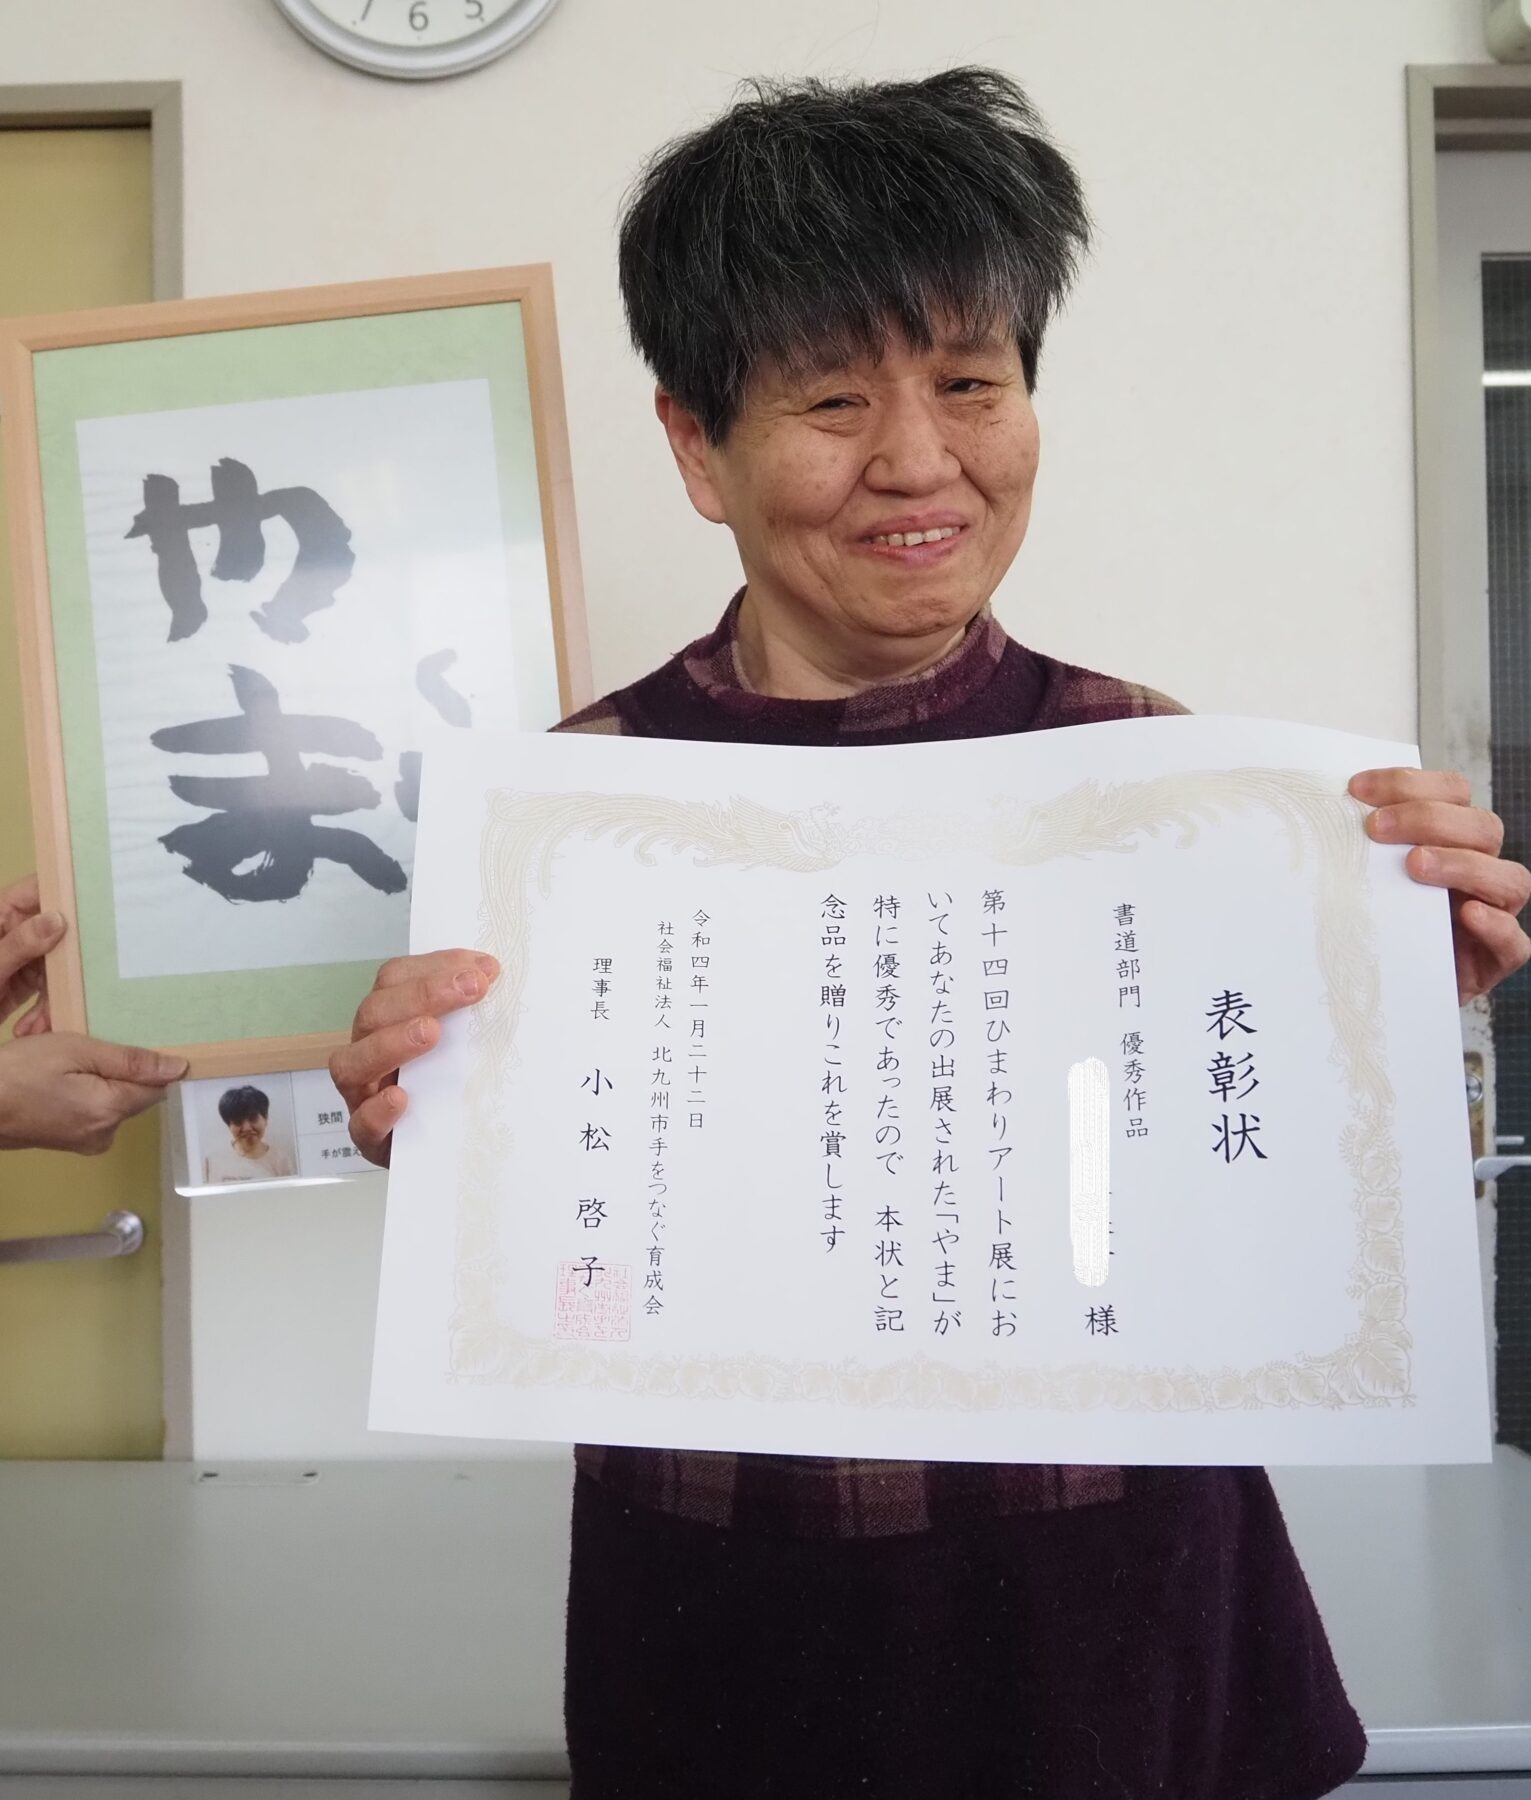 7 6 5
やま
表彰状
書道部門 優秀作品
様
第十四回ひまわりアート展にお
いてあなたの出展された「やま」が
特に優秀であったので 本状と記
念品を贈りこれを賞します
令和四年一月二十二日
社会福祉法人 北九州市手をつなぐ育成会
理事長 小松啓子
狭間
手が震え